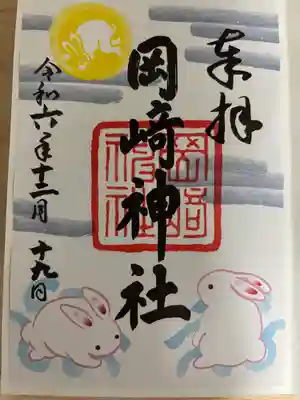 奉拝
岡崎神社
岡崎神社
令和六年十二月十九日